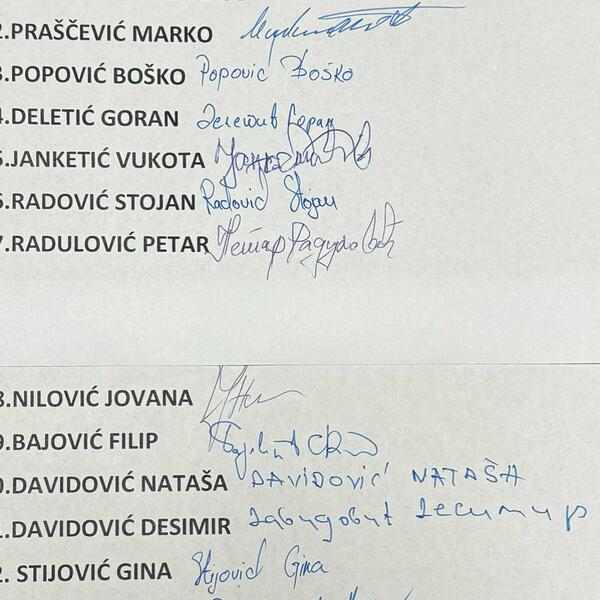 2.PRAŠČEVIĆ MARKO
3.POPOVIĆ BOŠKO Popović Boško
4.DELETIĆ GORAN Делетић Горан
5.JANKETIĆ VUKOTA
6.RADOVIĆ STOJAN Radović Stojan
7.RADULOVIĆ PETAR Петар Радуловић
8.NILOVIĆ JOVANA
9.BAJOVIĆ FILIP
0.DAVIDOVIĆ NATAŠA DAVIDOVIĆ NATAŠA
1.DAVIDOVIĆ DESIMIR Давидовић Десимир
2. STIJOVIĆ GINA Stijović Gina